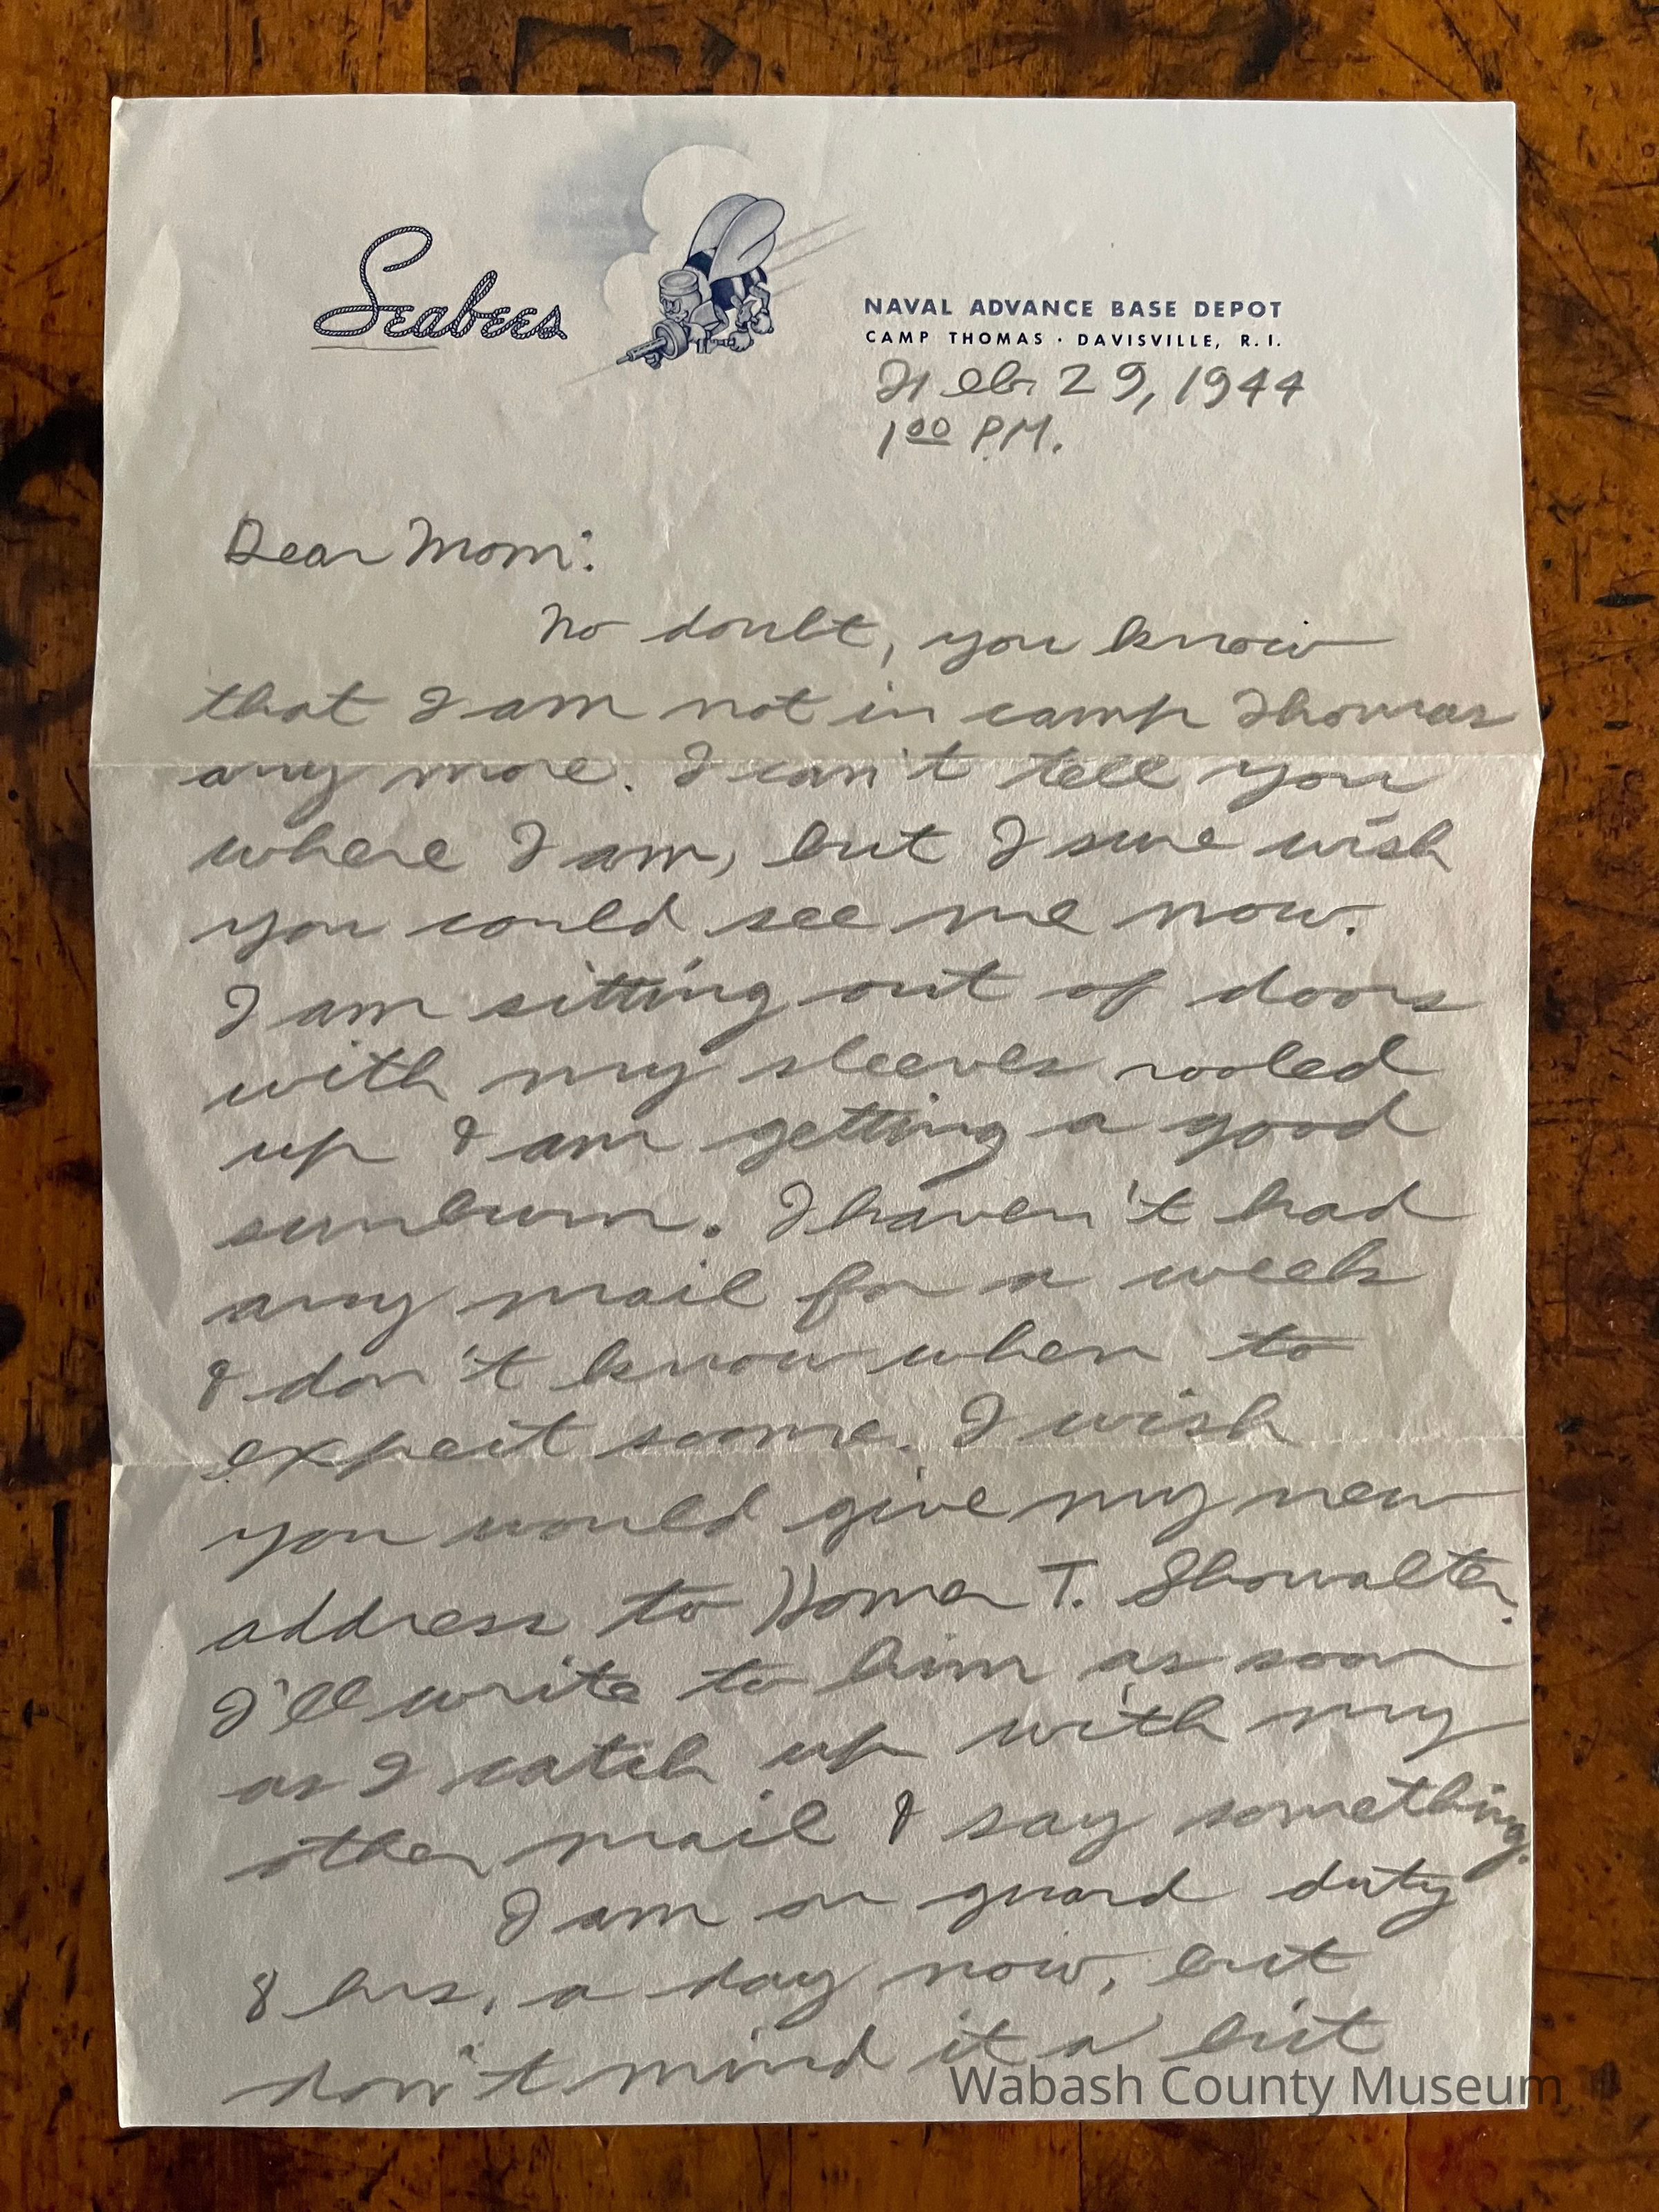 Seabees
NAVAL ADVANCE BASE DEPOT
CAMP THOMAS · DAVISVILLE, R. I.
Feb. 29, 1944
1 00 P.M.
Dear Mom:
No doubt, you know
that I am not in camp Thomas
any more. I can't tell you
where I am, but I sure wish
you could see me now.
I am sitting out of doors
with my sleeves rooled
up & am getting a good
sunburn. I haven't had
any mail for a week
& don't know when to
expect soome. I wish
you would give my new
address to Homer T. Showalter.
I'll write to him as soon
as I catch up with my
other mail & say something.
I am on guard duty
8 hrs. a day now, but
don't mind it a bit
Wabash County Museum